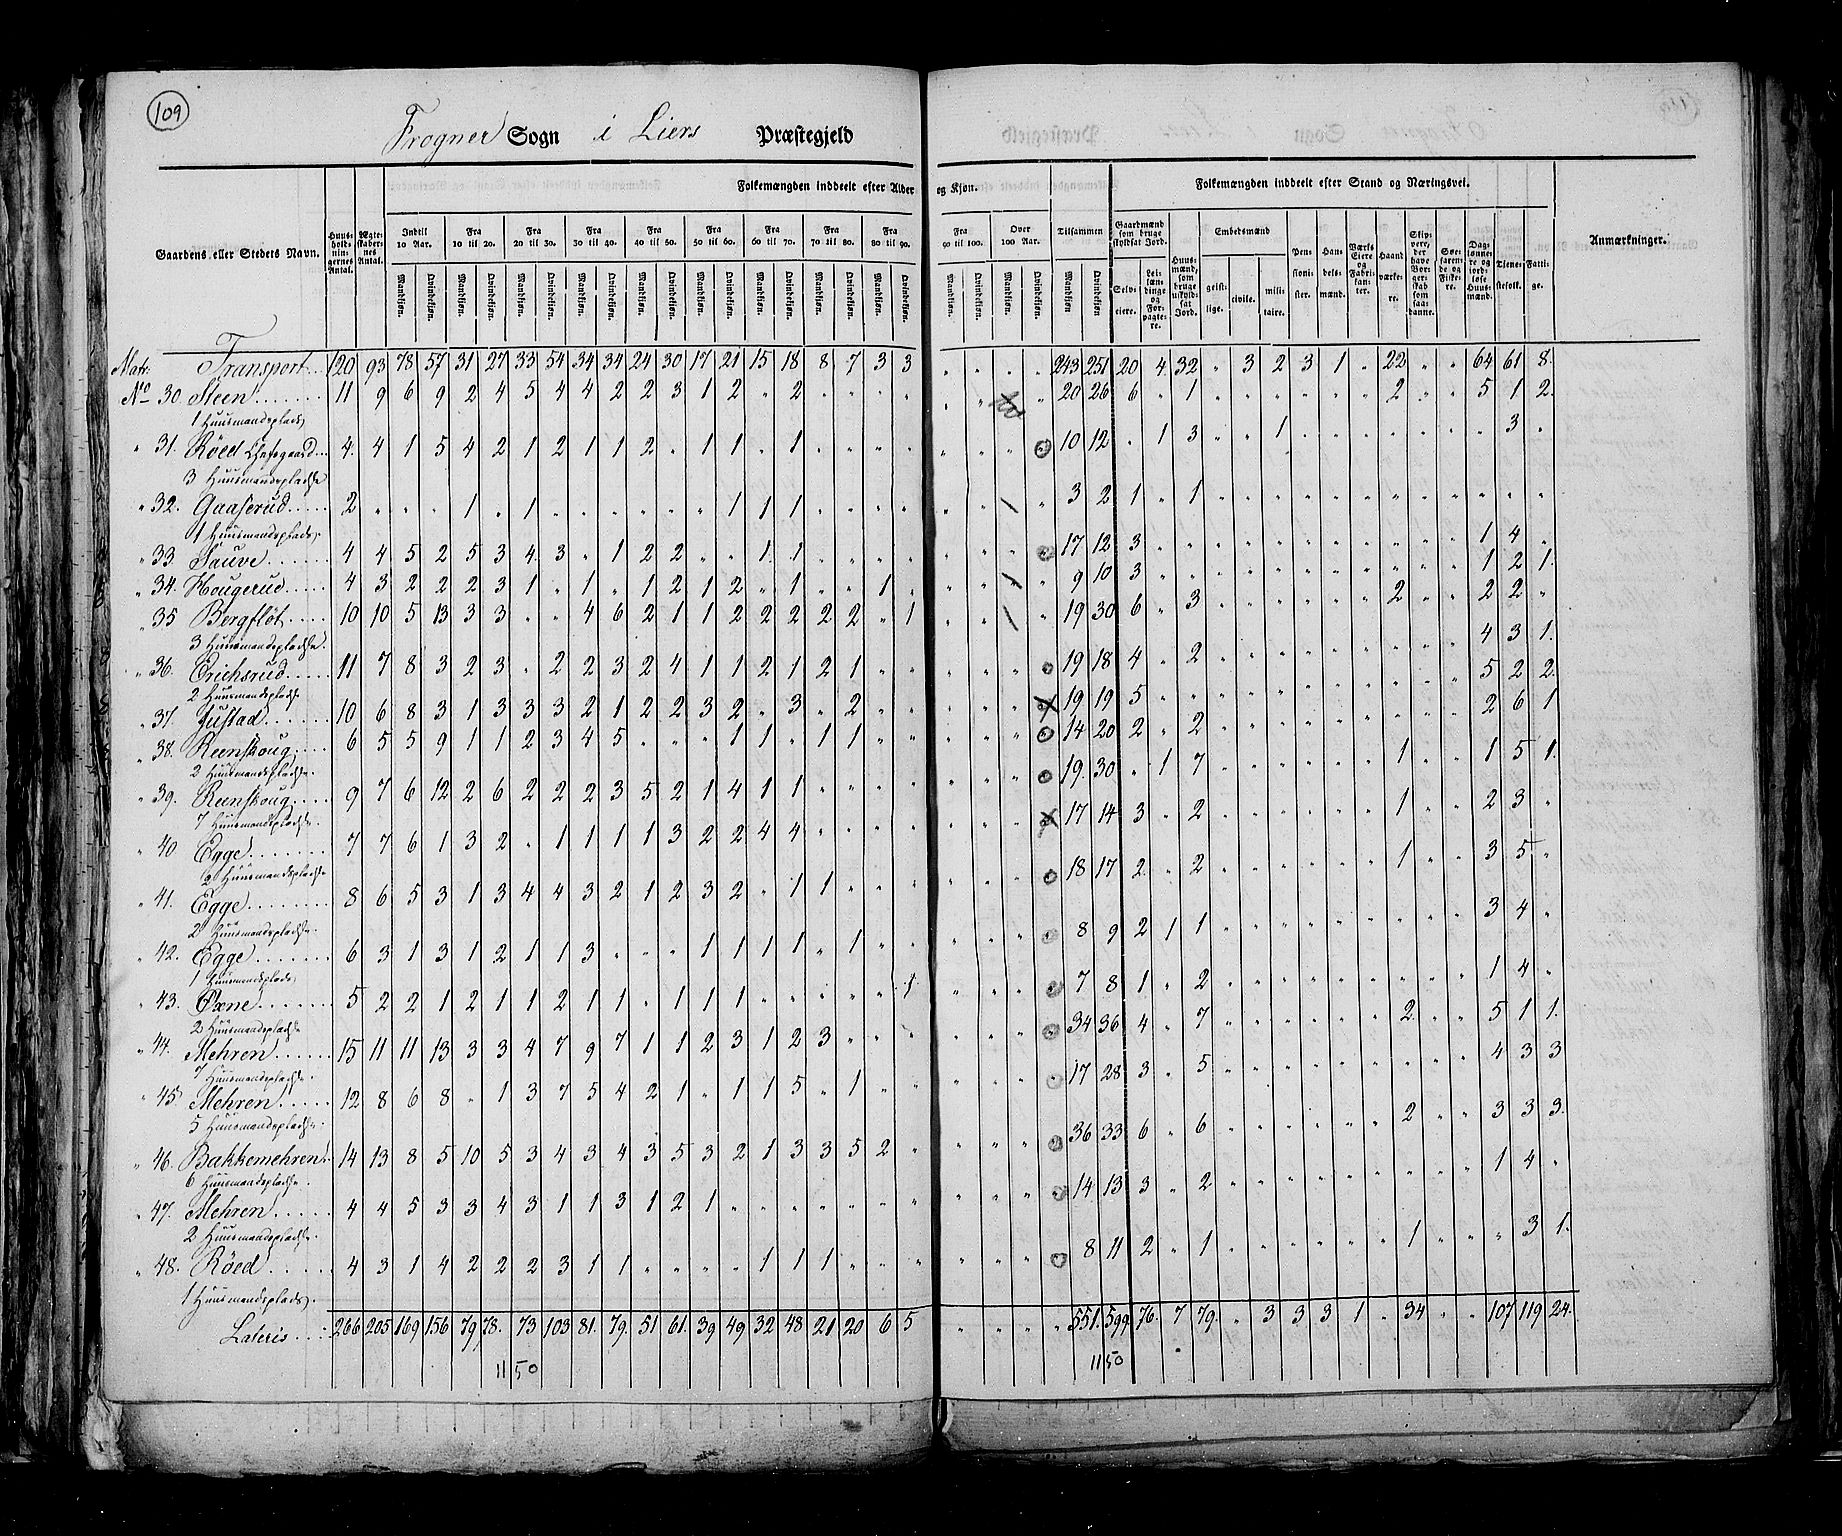 109
Frogner Sogn i Liers Præstegjeld
Gaardens eller Stedets Navn. Huus-holdnin-gernes Antal. Ægte-skaber-nes Antal. Folkemængden inddeelt efter Alder og Kjøn. Folkemængden inddeelt efter Stand og Næringsvei. Anmærkninger.
Indtil 10 Aar. Fra 10 til 20. Fra 20 til 30. Fra 30 til 40. Fra 40 til 50. Fra 50 til 60. Fra 60 til 70. Fra 70 til 80. Fra 80 til 90. Fra 90 til 100. Over 100 Aar. Tilsammen
Mandkjøn. Qvindekjøn.
Gaardmænd som bruge skyldsat Jord. Selv-eiere. Lei-lændinge og For-pagte-re. Huus-mænd, som bruge uskyld-sat Jord. Embedsmænd geist-lige. civile. mili-taire. Pen-sioni-ster. Han-dels-mænd. Værks Eiere og Fabri-kan-ter. Haand-værke-re. Skip-pere, der have Bor-ger-skab som saa-danne. Søe-faren-de og Fiske-re. Dag-lønne-re og jord-løse Huus-mænd. Tjene-stefolk. Fatti-ge.
Matr: Transport 120 93 78 57 31 27 33 54 34 34 24 30 17 21 15 18 8 7 3 3 " " " " 243 251 20 4 32 " 3 2 3 1 " 22 " " 64 61 8
No 30. Steen 11 9 6 9 2 4 5 4 4 2 2 3 1 2 " 2 20 26 6 " 1 2 5 1 2
1 Huusmandsplads
" 31. Røed 4 4 1 5 4 2 1 2 1 1 2 " 1 1 " 1 10 12 " 1 3 " " 1 3 "
3 Huusmandspladse
" 32. Gaaserud 2 " " " 1 " 1 " " " " " " 1 1 1 3 2 1 " 1
1 Huusmandsplads
" 33. Sauve 4 4 5 2 5 3 4 3 " 1 2 2 " " 1 1 17 12 3 1 4 "
" 34. Hougerud 4 3 2 2 2 3 1 " 1 " 1 2 1 2 " 1 " " 1 " 9 10 3 1 2 1
35 Bergfløt 10 10 5 13 3 3 " " 4 6 2 1 1 2 2 2 2 2 " 1 19 30 6 " 3 2 2 2 "
3 Huusmandspladse
" 36. Erichsrud 11 7 8 3 2 3 " 2 2 3 2 4 1 1 2 1 2 1 19 18 4 " 2 4 3 1
2 Huusmandspladse
" 37. Justad 10 6 8 3 1 3 3 3 2 1 2 2 3 2 " 3 " 2 19 19 5 5 2 2
" 38. Reenskoug 6 5 5 9 1 1 2 3 4 5 " " " 1 1 " 1 1 14 20 2 " 2 2 6 1
2 Huusmandspladse
" 39. Reenskoug 9 7 6 12 2 6 2 2 2 3 5 2 1 4 1 1 19 30 " 1 7 1 1 5 1
7 Huusmandspladse
" 40 Egge 7 7 6 1 3 2 " 1 1 1 1 3 2 2 4 4 17 14 3 " 2 1 2 3 "
2 Huusmandspladse
" 41. Egge 8 6 5 3 1 3 4 4 3 2 1 2 3 2 " 1 1 18 17 2 " 2 1 3 5 "
2 Huusmandspladse
" 42. Egge 6 3 1 3 1 2 1 1 3 " " " 1 1 1 1 " 1 8 9 2 1 1 3 4 "
1 Huusmandsplads
" 43. Øxne 5 2 2 1 2 1 1 2 1 1 " 1 1 1 " " " " " 1 7 8 1 " 2 1 4 "
2 Huusmandspladse
" 44. Mehren 15 11 11 13 3 3 4 7 9 7 1 1 2 3 1 2 3 34 36 4 " 7 2 5 1 1
7 Huusmandspladse
" 45 Mehren 12 8 6 8 " 1 3 7 5 4 2 1 " 1 1 5 " 1 17 28 3 " 5 4 3 3
5 Huusmandspladse
" 46. Bakkemehren 14 13 8 5 10 5 3 4 3 4 3 5 3 2 1 3 3 5 2 " 36 33 6 " 6 2 3 3 3
6 Huusmandspladse
" 47. Mehren 4 4 5 3 3 4 3 1 1 3 1 2 1 14 13 3 " 2 1 4 "
2 Huusmandspladse
" 48. Røed 4 3 1 4 2 2 2 3 1 1 " " " " 1 1 1 8 11 2 " 1 1 " 3 1
1 Huusmandsplads
Lateris 266 205 169 156 79 78 73 103 81 79 51 61 39 49 32 48 21 20 6 5 " " " " 551 599 76 7 79 " 3 3 3 1 " 34 " " 107 119 24
1150 1150